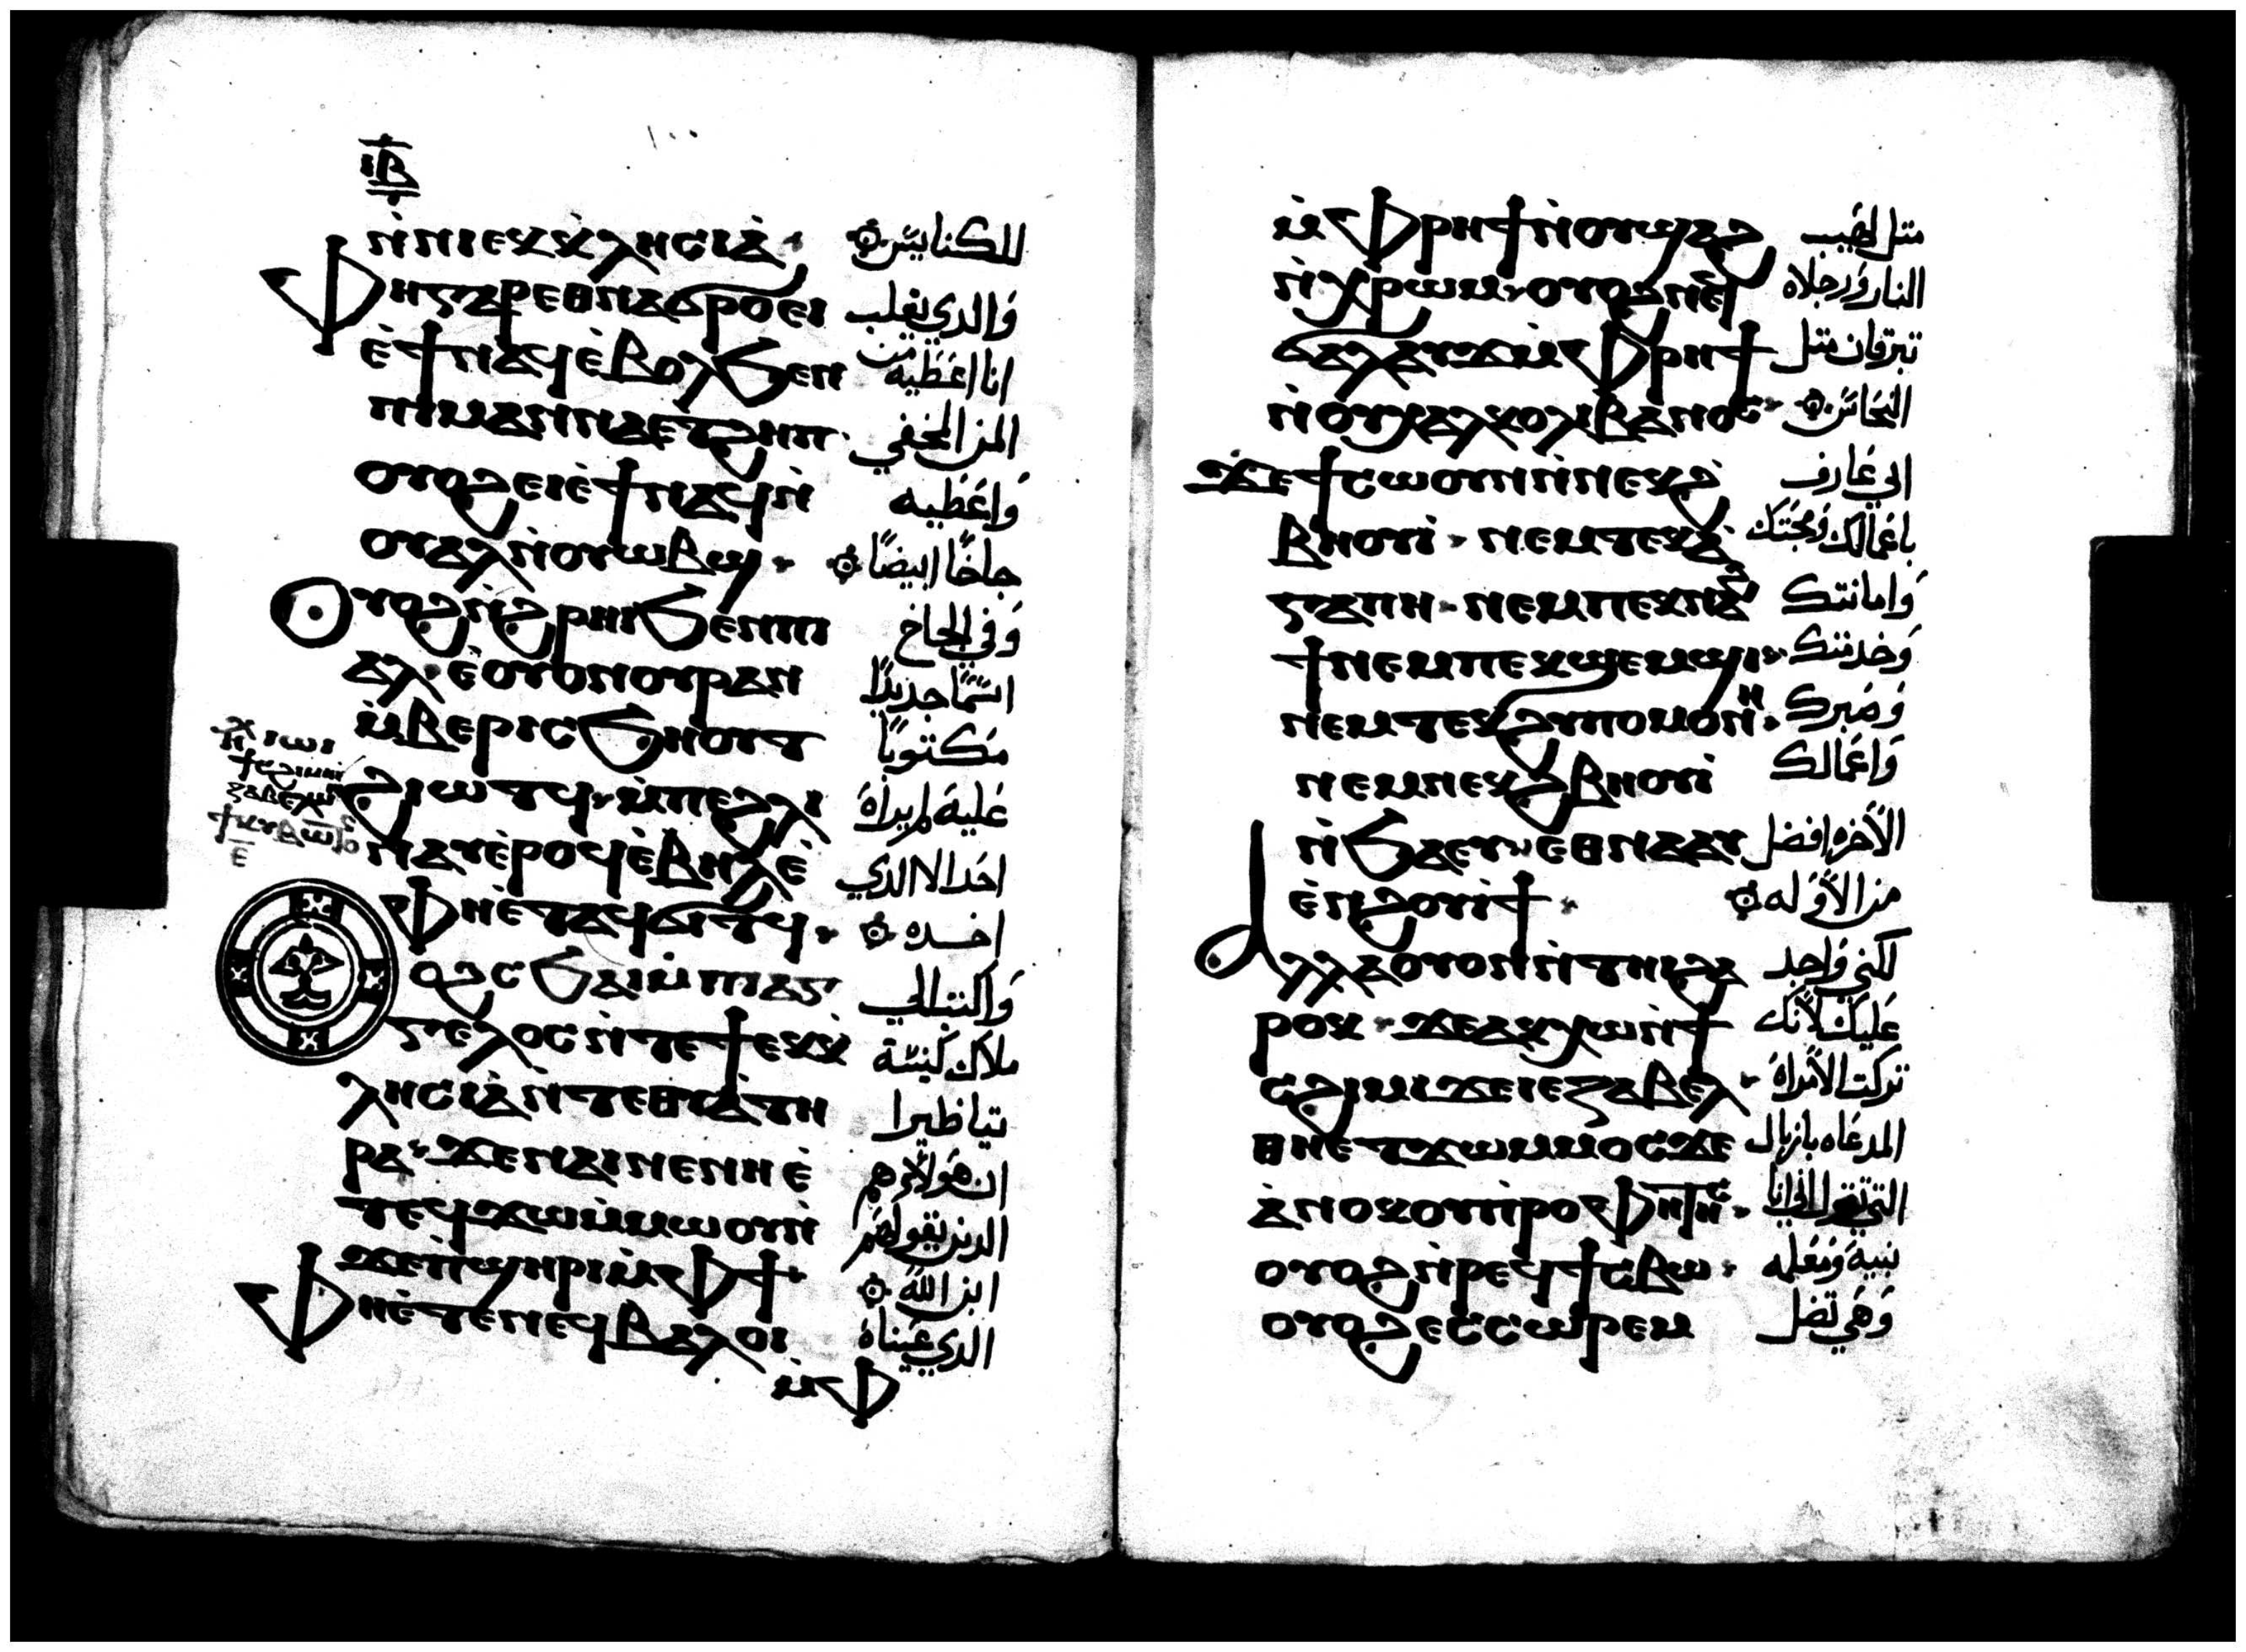 ⲓⲃ
ⲛ̀ⲛⲓⲉⲕⲕⲗⲏⲥⲓⲁ̀ للكنايس
ⲫⲏ ⲅⲁⲣ ⲉⲑⲛⲁϭⲣⲟ ⲉⲓ والدي يغلب
ⲉ̀ϯⲛⲁϥ ⲉ̀ⲃⲟⲗϧⲉⲛ انا اعطيه من
ⲡⲓⲙⲁⲛⲛⲁ ⲉⲧϩⲏⲡ المن المخفي
ⲟⲩⲟϩ ⲉⲓⲉ̀ϯⲛⲁϥ ⲛ̀ واعطيه
ⲟⲩⲁⲗ ⲛ̀ⲟⲩⲱⲃϣ حلخا ابيضا
ⲟⲩⲟϩ ⲛ̀ϩⲣⲏⲓ ϧⲉⲛ ⲡⲓ وفي الحلخ
ⲁⲗ ⲉ̀ⲟⲩⲟⲛ ⲟⲩⲣⲁⲛ اسما جديدا
ⲙ̀ⲃⲉⲣⲓ ⲥϧⲏⲟⲩⲧ مكتوبا
ϩⲓⲱⲧϥ ⲙ̀ⲡⲉ ϩⲗⲓ عليه لم يراه
ⲛⲁⲩ ⲉ̀ⲣⲟϥ ⲉ̀ⲃⲏⲗ ⲉ̀ احد الا الدي
ⲫⲏ ⲉ̀ⲧⲁϥϭⲓⲧϥ اخده
ⲟϩ ⲥϧⲁⲓ ⲙ̀ⲡⲓⲁⲅ واكتب الي
ⲅⲉⲗⲟⲥ ⲛ̀ⲧⲉ ϯⲉⲕⲕ̀ ملاك كنيسة
ⲗⲏⲥⲓⲁ̀ ⲛ̀ⲧⲉ ⲑⲓⲁ̀ⲧⲏ تياطيرا
ⲣⲁ ϫⲉ ⲛⲁⲓ ⲛⲉ ⲛⲏ ⲉ̀ ان هولاء هم
ⲧⲉϥϫⲱ ⲙ̀ⲙⲱⲟⲩ ⲛ̀ الدين يقولهم
ϫⲉ ⲡ̀ϣⲏⲣⲓ ⲙ̀ⲫϯ ابن الله
ⲫⲏ ⲉ̀ⲧⲉ ⲛⲉϥⲃⲁⲗ ⲟⲓ الدي عيناه
ⲙ̀ⲫ
ⲙ̀ⲫⲣⲏϯ ⲛ̀ⲟⲩϣⲁϩ متل لهيب
ⲛ̀ⲭⲣⲱⲙ ⲟⲩⲟϩ ⲛⲉϥ النار ورجلاه
ϭⲁⲗⲁⲩϫ ⲙ̀ⲫⲣⲏϯ تبرقان متل
ⲛ̀ⲟⲩⲭⲁⲗⲕⲟⲗⲓⲃⲁⲛⲟⲥ النحاس
ϫⲉ ϯⲥⲱⲟⲩⲛ ⲛ̀ⲛⲉⲕϩ̀ اني عارف
ⲃⲏⲟⲩⲓ̀ ⲛⲉⲙ ⲧⲉⲕⲁ̀ باعمالك ومحبتك
ⲅⲁⲡⲏ ⲛⲉⲙ ⲡⲉⲕⲛⲁϩ وامانتك
ϯ ⲛⲉⲙ ⲡⲉⲕϣⲉⲙϣⲓ وخدمتك
ⲛⲉⲙ ⲧⲉⲕϩⲩⲡⲟⲙⲟⲛⲏ وصبرك
ⲛⲉⲙ ⲛⲉⲕϩ̀ⲃⲏⲟⲩⲓ̀ واعمالك
ⲛ̀ϧⲁⲉⲩ ⲉⲑⲛⲁⲁⲩ الاخره افضل
ⲉ̀ⲛϩⲟⲩⲓ̀ϯ من الاوله
ⲁⲗⲗⲁ ⲟⲩⲟⲛ ⲛ̀ⲧⲏⲓ ϩⲁ لكني واجد
ⲣⲟⲕ ϫⲉ ⲁⲕⲭⲱ ⲛ̀ϯ عليك لانك
ⲥϩⲓⲙⲓ ϫⲉ ⲓⲉⲍⲁⲃⲉⲗ تركت الامراه
ⲑⲏ ⲉⲧϫⲱ ⲙⲙⲟⲥ ϫⲉ المدعاه يازبال
ⲁ̀ⲛⲟⲕ ⲟⲩⲡ̀ⲣⲟⲫⲏⲧⲏⲥ التي تقول اني انا
ⲟⲩⲟϩ ⲛ̀ⲣⲉϥϯⲥⲃⲱ نبية ومعلمه
ⲟⲩⲟϩ ⲉⲥⲥⲱⲣⲉⲙ وهي تضل